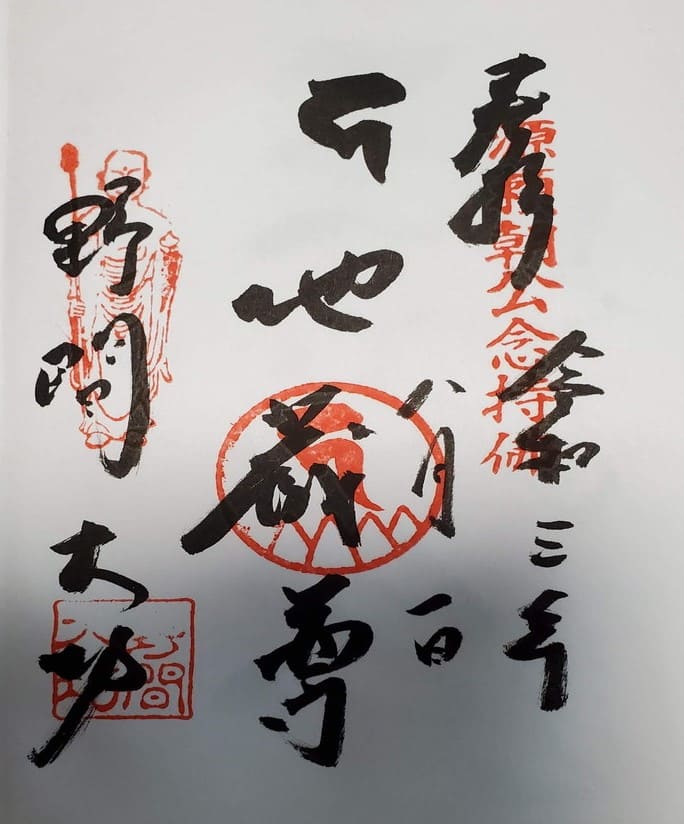 奉拝
源頼朝公念持佛
令和三年
八月一日
地蔵尊
野間大坊